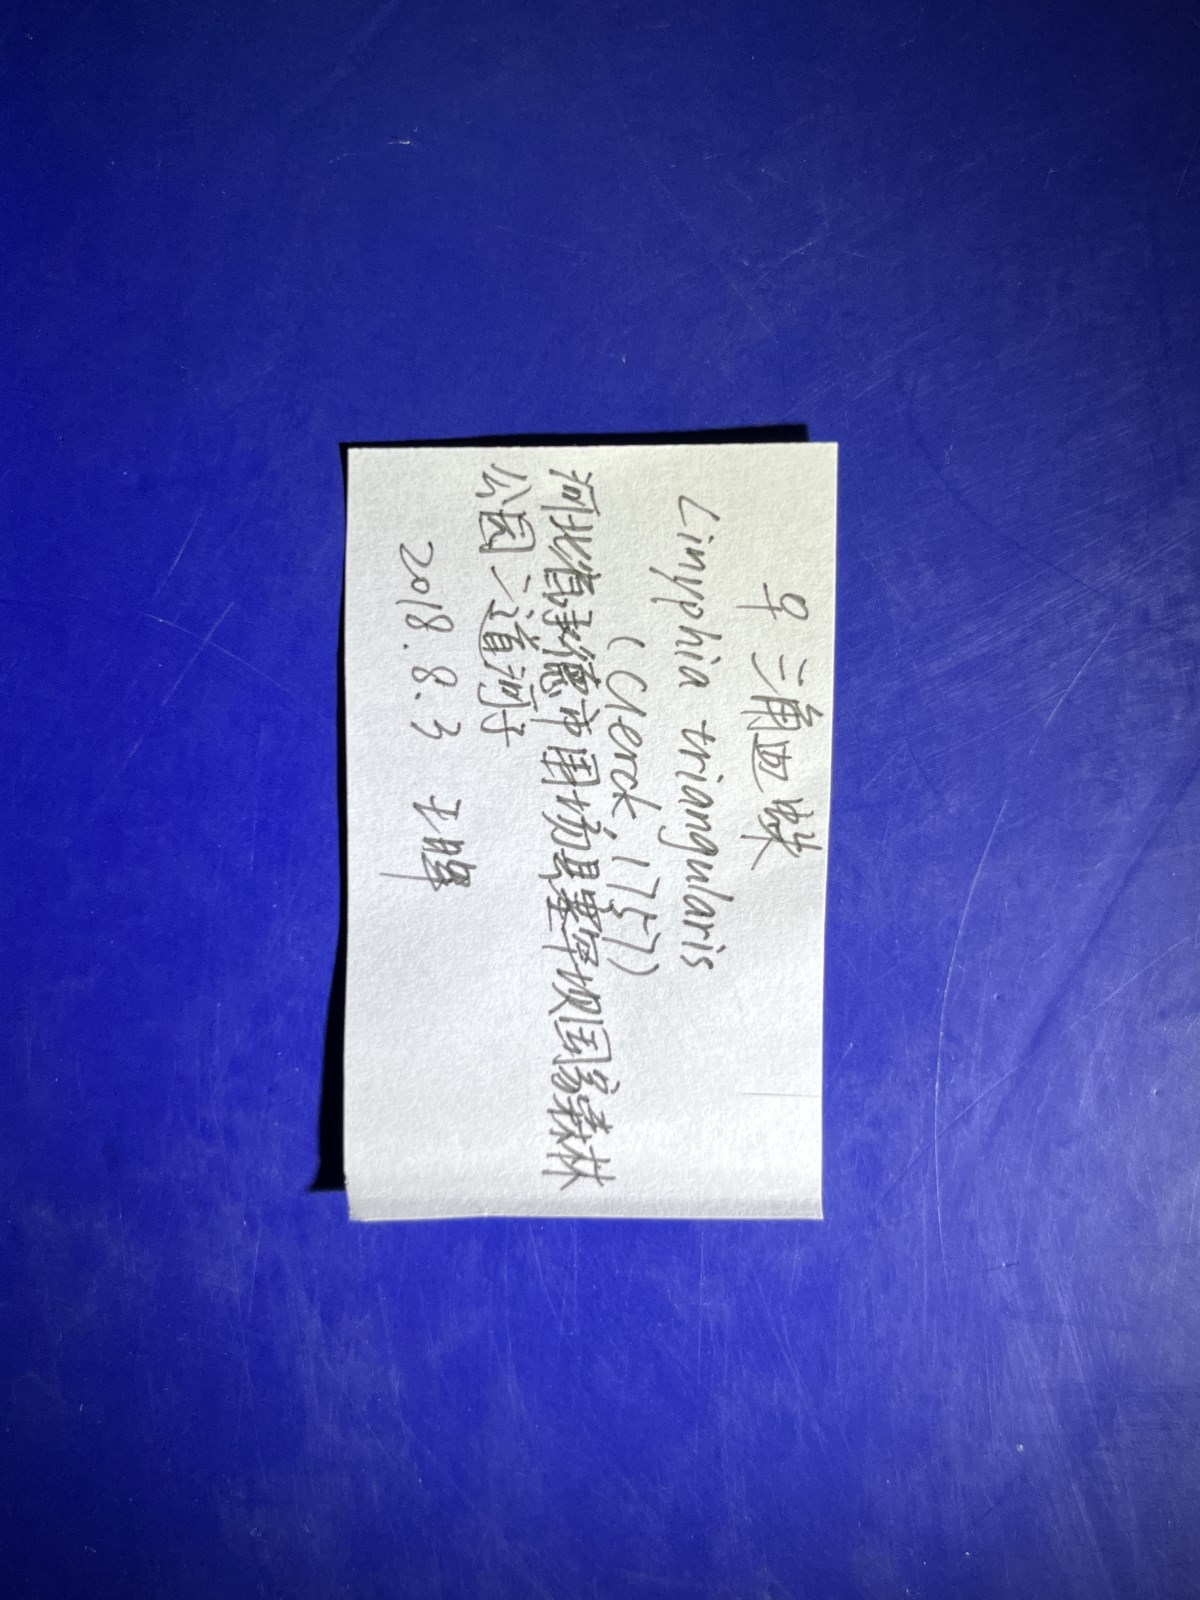 ♀ 三角皿蛛
Linyphia triangularis
(Clerck, 1757)
河北省承德市围场县塞罕坝国家森林
公园二道河子
2018.8.3 王晖